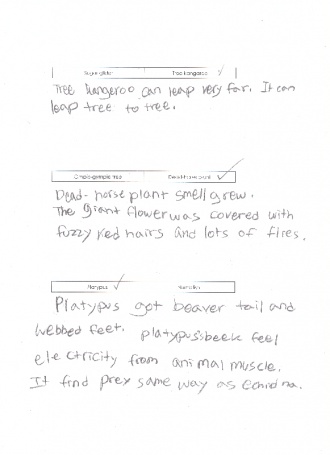 Sugar glider Tree kangaroo ✓
Tree kangaroo can leap very far. It can
leap tree to tree.
Dead-horse plant ✓
Dead-horse plant smell grew.
The Giant flower was covered with
fuzzy red hairs and lots of flies.
Platypus ✓
Platypus got beaver tail and
webbed feet. platypus's beek feel
electricity from animal muscle.
It find prey same way as Echidna.